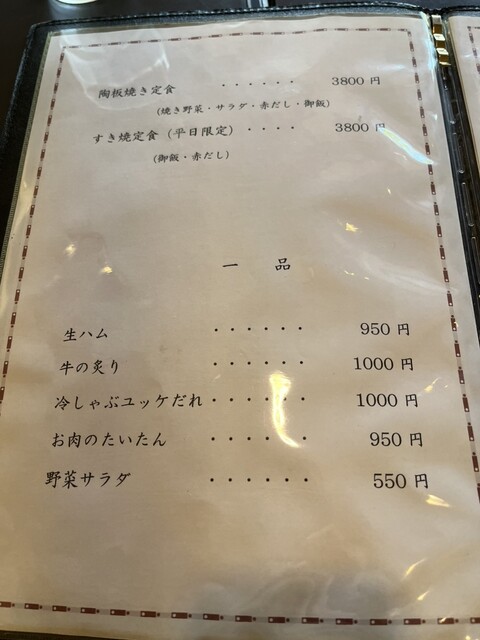 陶板焼き定食 ・・・・・・ 3800 円
(焼き野菜・サラダ・赤だし・御飯)
すき焼定食 (平日限定) ・・・・ 3800 円
(御飯・赤だし)
一 品
生ハム ・・・・・・ 950 円
牛の炙り ・・・・・・ 1000 円
冷しゃぶユッケだれ ・・・・・・ 1000 円
お肉のたいたん ・・・・・・ 950 円
野菜サラダ ・・・・・・ 550 円